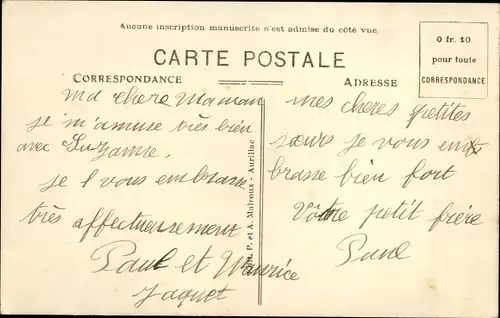 Aucune inscription manuscrite n'est admise du côté vue.
CARTE POSTALE
0 fr. 10
pour toute
CORRESPONDANCE
CORRESPONDANCE
ADRESSE
Ma chere Maman
je m'amuse très bien
avec Suzanne,
je vous embrasse
très affectueusement
Paul et Maurice
Jaquet
mes cheres petites
sœurs je vous em
brasse bien fort
Vôtre petit frère
Paul
P. et A. Malroux - Aurillac